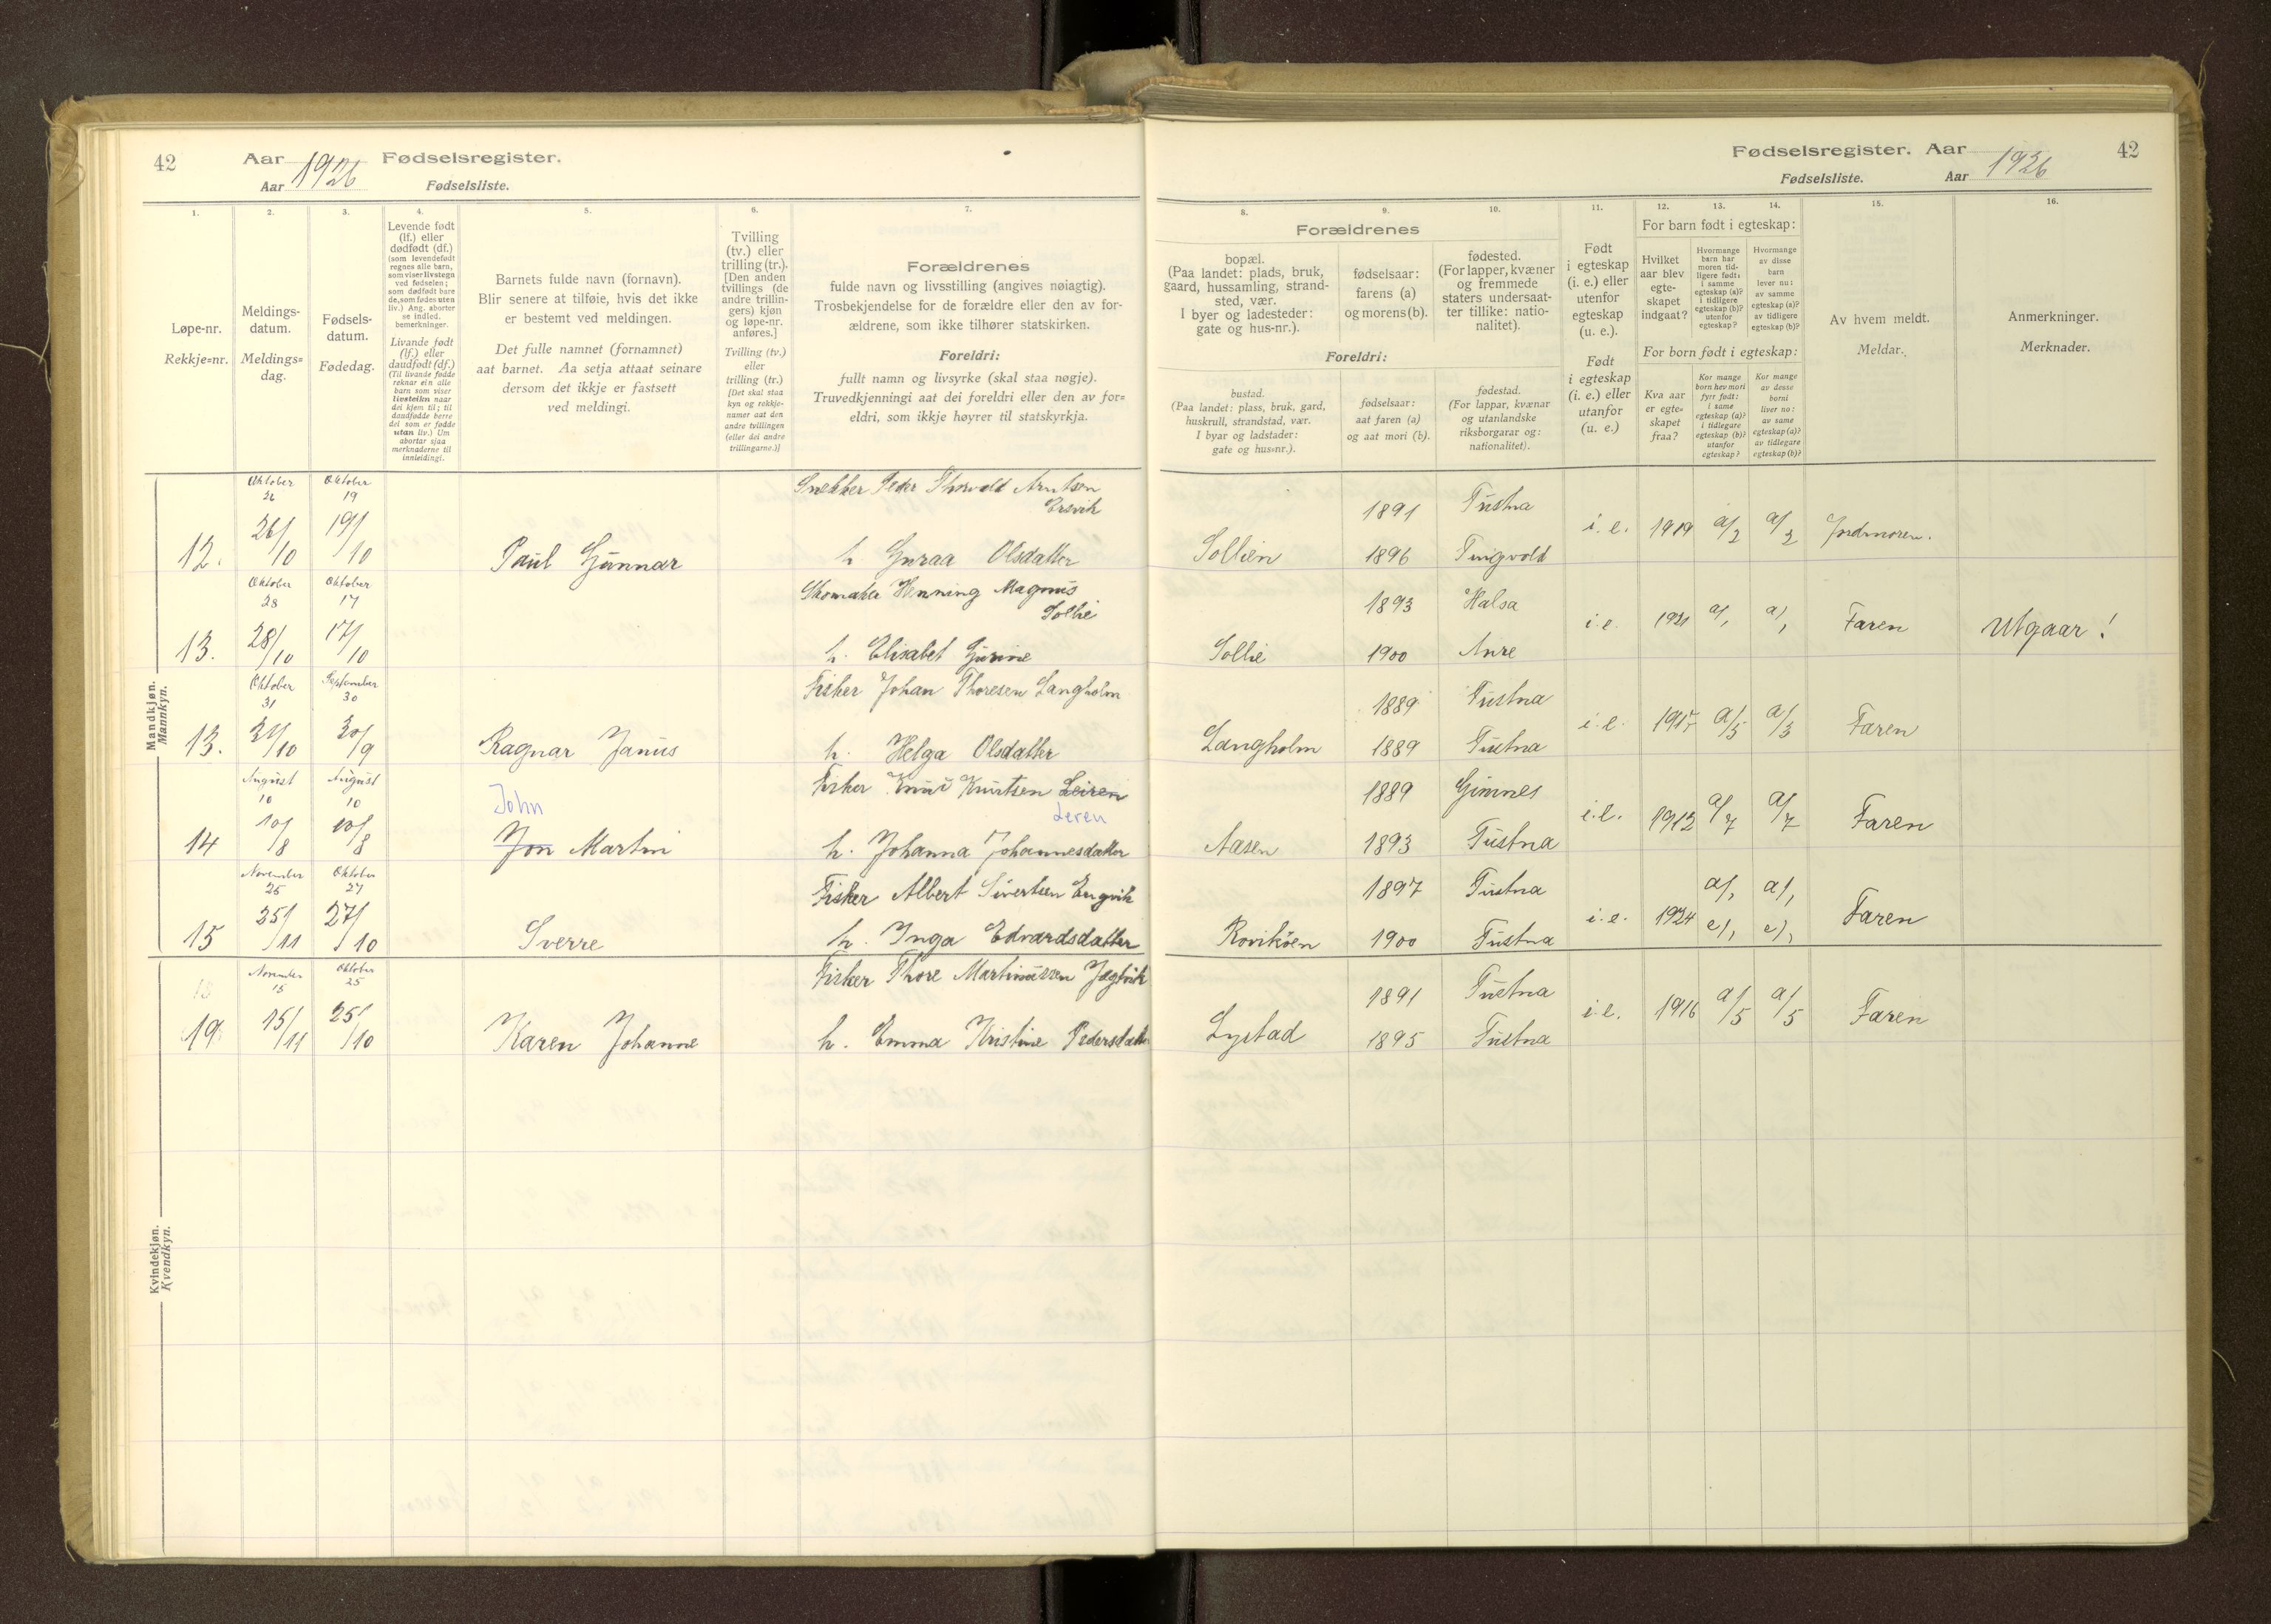 42
Aar 1926 Fødselsregister.
Aar Fødselsliste.
1. 2. 3. 4. 5. 6. 7.
Løpe-nr.
Rekkje=nr.
Meldings-
datum.
Meldings=
dag.
Fødsels-
datum.
Fødedag.
Levende født
(lf.) eller
dødfødt (df.)
(som levendefødt
regnes alle barn,
som viser livstegn
ved fødselen;
som dødfødt bare
de, som fødes uten
liv.) Ang. aborter
se indled.
bemerkninger.
Livande født
(lf.) eller
daudfødt (df.)
(Til livande fødde
reknar ein alle
barn som viser
livsteikn naar
dei kjem til; til
daudfødde berre
dei som er fødde
utan liv.) Um
abortar sjaa
merknaderne til
innleidingi.
Barnets fulde navn (fornavn).
Blir senere at tilføie, hvis det ikke
er bestemt ved meldingen.
Det fulle namnet (fornamnet)
aat barnet. Aa setja attaat seinare
dersom det ikkje er fastsett
ved meldingi.
Tvilling
(tv.) eller
trilling (tr.).
[Den anden
tvillings (de
andre trillin-
gers) kjøn
og løpe-nr.
anføres.]
Tvilling (tv.)
eller
trilling (tr.)
[Det skal staa
kyn og rekkje-
numer aat den
andre tvillingen
(eller dei andre
trillingarne.)]
Forældrenes
fulde navn og livsstilling (angives nøiagtig).
Trosbekjendelse for de forældre eller den av for-
ældrene, som ikke tilhører statskirken.
Foreldri:
fullt namn og livsyrke (skal staa nøgje).
Truvedkjenningi aat dei foreldri eller den av for=
eldri, som ikkje høyrer til statskyrkja.
Mandkjøn.
Mannkyn.
Oktober 26 Oktober 19 Snekker Peder Thorvald Arntsen
Ersvik
12. 26/10 19/10 Paul Gunnar h. Guraa Olsdatter
Oktober 28 Oktober 17 Skomaker Henning Magnus
Sollie
13. 28/10 17/10 h. Elisabet Gurine
Oktober 31 September 30 Fisker Johan Thoresen Langholm
13. 31/10 30/9 Ragnar Janus h. Helga Olsdatter
August 10 August 10 Fisker Knut Knutsen Leiren
John Leren
14 10/8 10/8 Jon Martin h. Johanna Johannesdatter
November 25 Oktober 27 Fisker Albert Sivertsen Engvik
15 25/11 27/10 Sverre h. Inga Edvardsdatter
Kvindekjøn.
Kvendkyn.
18 November 15 Oktober 25 Fisker Thore Martinussen Jægtvik
19 15/11 25/10 Karen Johanne h. Emma Kristine Pedersdatter
Fødselsregister. Aar 1926 42
Fødselsliste. Aar
8. 9. 10. 11. 12. 13. 14. 15. 16.
Forældrenes
bopæl.
(Paa landet: plads, bruk,
gaard, hussamling, strand-
sted, vær.
I byer og ladesteder:
gate og hus-nr.).
fødselsaar:
farens (a)
og morens (b).
fødested.
(For lapper, kvæner
og fremmede
staters undersaat-
ter tillike: natio-
nalitet).
Foreldri:
bustad.
(Paa landet: plass, bruk, gard,
huskrull, strandstad, vær.
I byar og ladstader:
gate og hus=nr.).
fødselsaar:
aat faren (a)
og aat mori (b).
fødestad.
(For lappar, kvænar
og utanlandske
riksborgarar og:
nationalitet).
Født
i egteskap
(i. e.) eller
utenfor
egteskap
(u. e.).
Født
i egteskap
(i. e.) eller
utanfor
(u. e.)
For barn født i egteskap:
Hvilket
aar blev
egte-
skapet
indgaat?
Hvormange
barn har
moren tid-
ligere født:
i samme
egteskap (a)?
i tidligere
egteskap (b)?
utenfor
egteskap?
Hvormange
av disse
barn
lever nu:
av samme
egteskap (a)?
av tidligere
egteskap (b)?
For born født i egteskap:
Kva aar
er egte=
skapet
fraa?
Kor mange
born hev mori
fyrr født:
i same
egteskap (a)?
i tidlegare
egteskap (b)?
utanfor
egteskap?
Kor mange
av desse
borni
liver no:
av same
egteskap (a)?
av tidlegare
egteskap (b)?
Av hvem meldt.
Meldar.
Anmerkninger.
Merknader.
1891 Tustna
Sollien 1896 Tingvold i. e. 1919 a/2 a/2 Jordmoren.
1893 Halsa
Sollie 1900 Aure i. e. 1921 a/1 a/1 Faren Utgaar!
1889 Tustna
Langholm 1889 Tustna i. e. a/5 a/3 Faren
1889 Gimnes
Aasen 1893 Tustna i. e. 1912 a/7 a/7 Faren
1897 Tustna a/1 a/1
1900 Tustna i. e. 1924 Faren
1891 Tustna
Lystad 1895 Tustna i. e. 1916 a/5 a/5 Faren